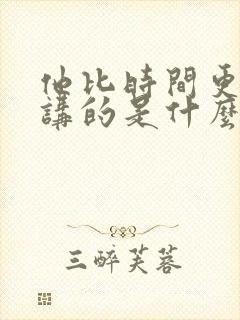 他比時間更
講的是什麼
三醉芙蓉